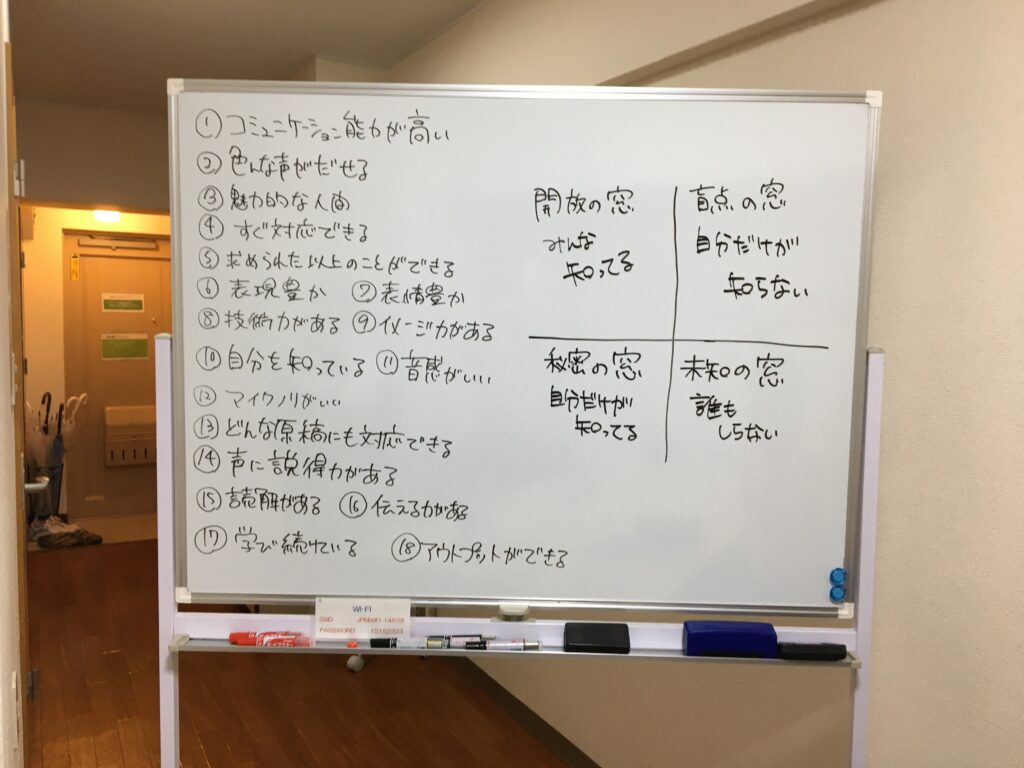 ① コミュニケーション能力が高い
② 色んな声がだせる
③ 魅力的な人間
④ すぐ対応できる
⑤ 求められた以上のことができる
⑥ 表現豊か ⑦ 表情豊か
⑧ 技術力がある ⑨ イメージ力がある
⑩ 自分を知っている ⑪ 音感がいい
⑫ マイクノリがいい
⑬ どんな原稿にも対応できる
⑭ 声に説得力がある
⑮ 読解がある ⑯ 伝える力がある
⑰ 学び続けている ⑱ アウトプットができる
開放の窓
みんな
知ってる
盲点の窓
自分だけが
知らない
秘密の窓
自分だけが
知ってる
未知の窓
誰も
しらない
WI-FI
SSID JPMWIFI-14632
PASSWORD 15152323